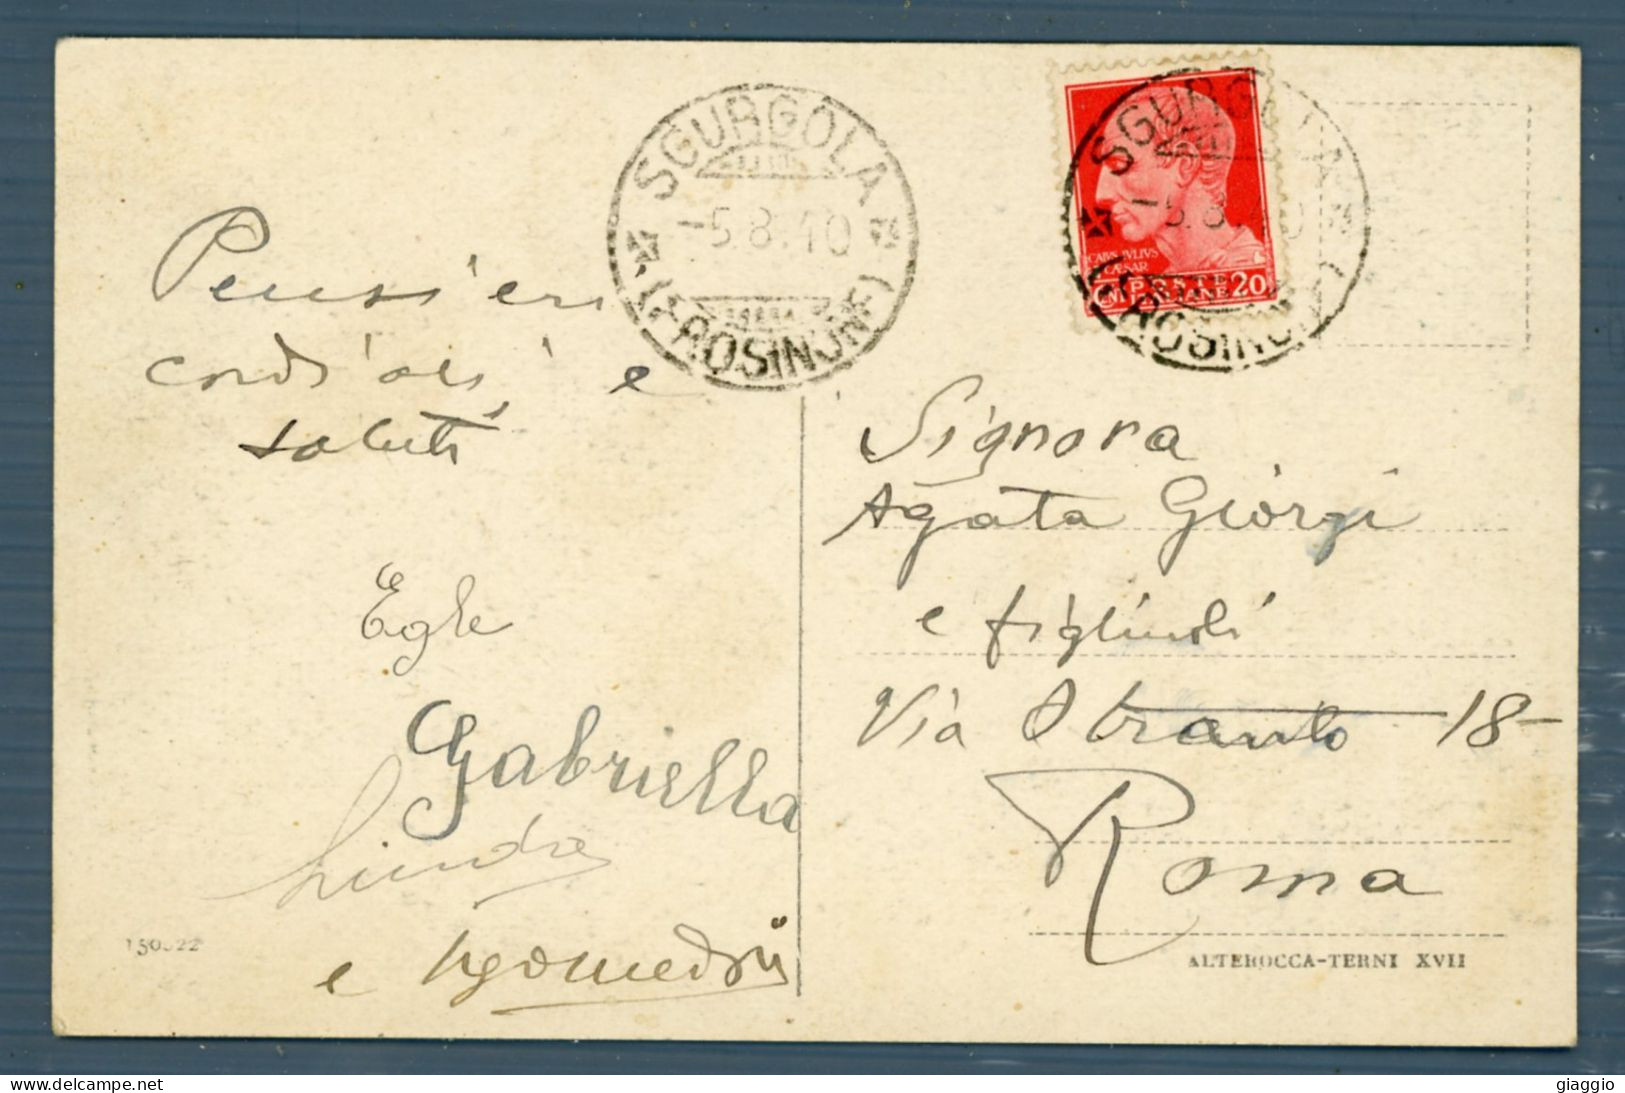 SGURGOLA
-5.8.40
(FROSINONE)
SGURGOLA
-5.8.40
(FROSINONE)
CAIVS IVLIVS
CÆSAR
CNI POSTE ITALIANE 20
Pensieri
cordiali e
saluti
Egle
Gabriella
Linda
e
Signora
Agata Giorgi
e figliuoli
Via Otranto 18-
Roma
ALTEROCCA-TERNI XVII
giaggio